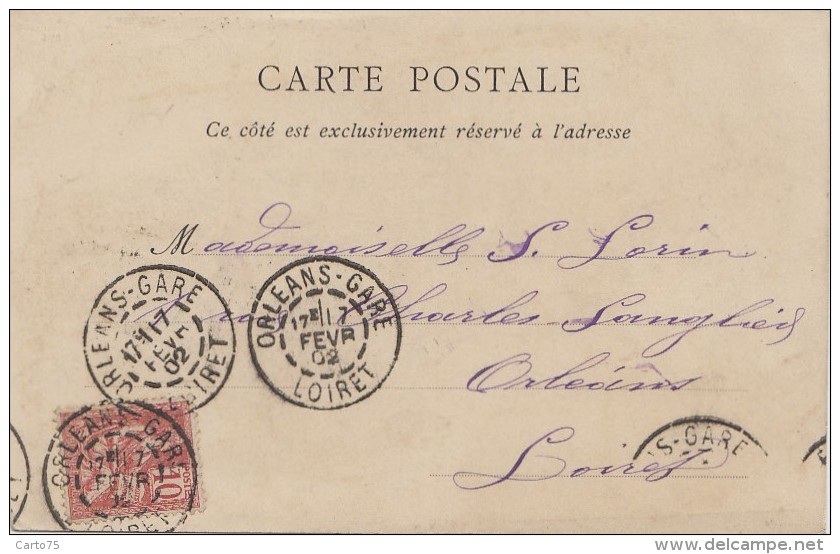 CARTE POSTALE
Ce côté est exclusivement réservé à l'adresse
Mademoiselle S. Lorin
rue Charles Sanglier
Orléans
Loiret
ORLEANS-GARE
17E 17
FEVR
02
LOIRET
ORLEANS-GARE
17E 17
FEVR
02
LOIRET
ORLEANS-GARE
17E 17
FEVR
LOIRET
10
NS-GARE
Carto75
delcampe.net